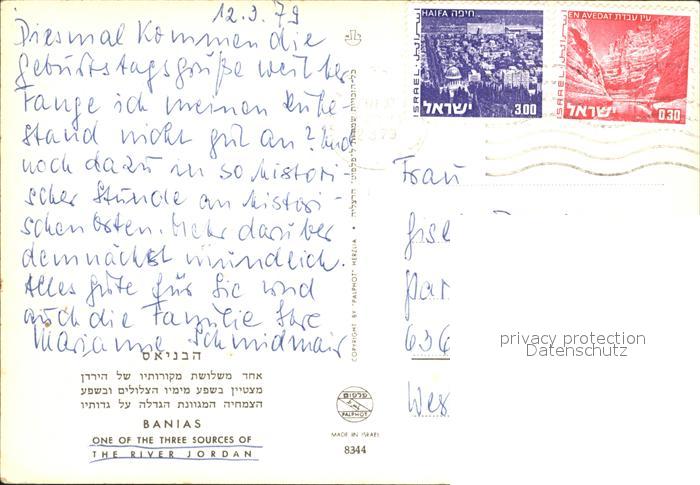 12.3.79
Diesmal kommen die
Geburtstagsgrüße weither
Fange ich meinen Ruhe-
stand nicht gut an? Und
noch dazu in so histori-
scher Stunde an histori-
schen Orten. Mehr darüber
demnächst mündlich.
Alles Gute für Sie und
auch die Familie Ihre
Marianne Schmidmair
הבניאס
אחד משלושת מקורותיו של הירדן
מצטיין בשפע מימיו הצלולים ובשפע
הצמחיה המגוונת הגדלה על גדותיו
BANIAS
ONE OF THE THREE SOURCES OF
THE RIVER JORDAN
COPYRIGHT BY "PALPHOT" HERZLIA
פלפוט
PALPHOT
MADE IN ISRAEL
8344
HAIFA חיפה
ISRAEL
ישראל
3.00
EN AVEDAT עין עבדת
ISRAEL
ישראל
0.30
Frau
Gisel
636
Wes
privacy protection
Datenschutz